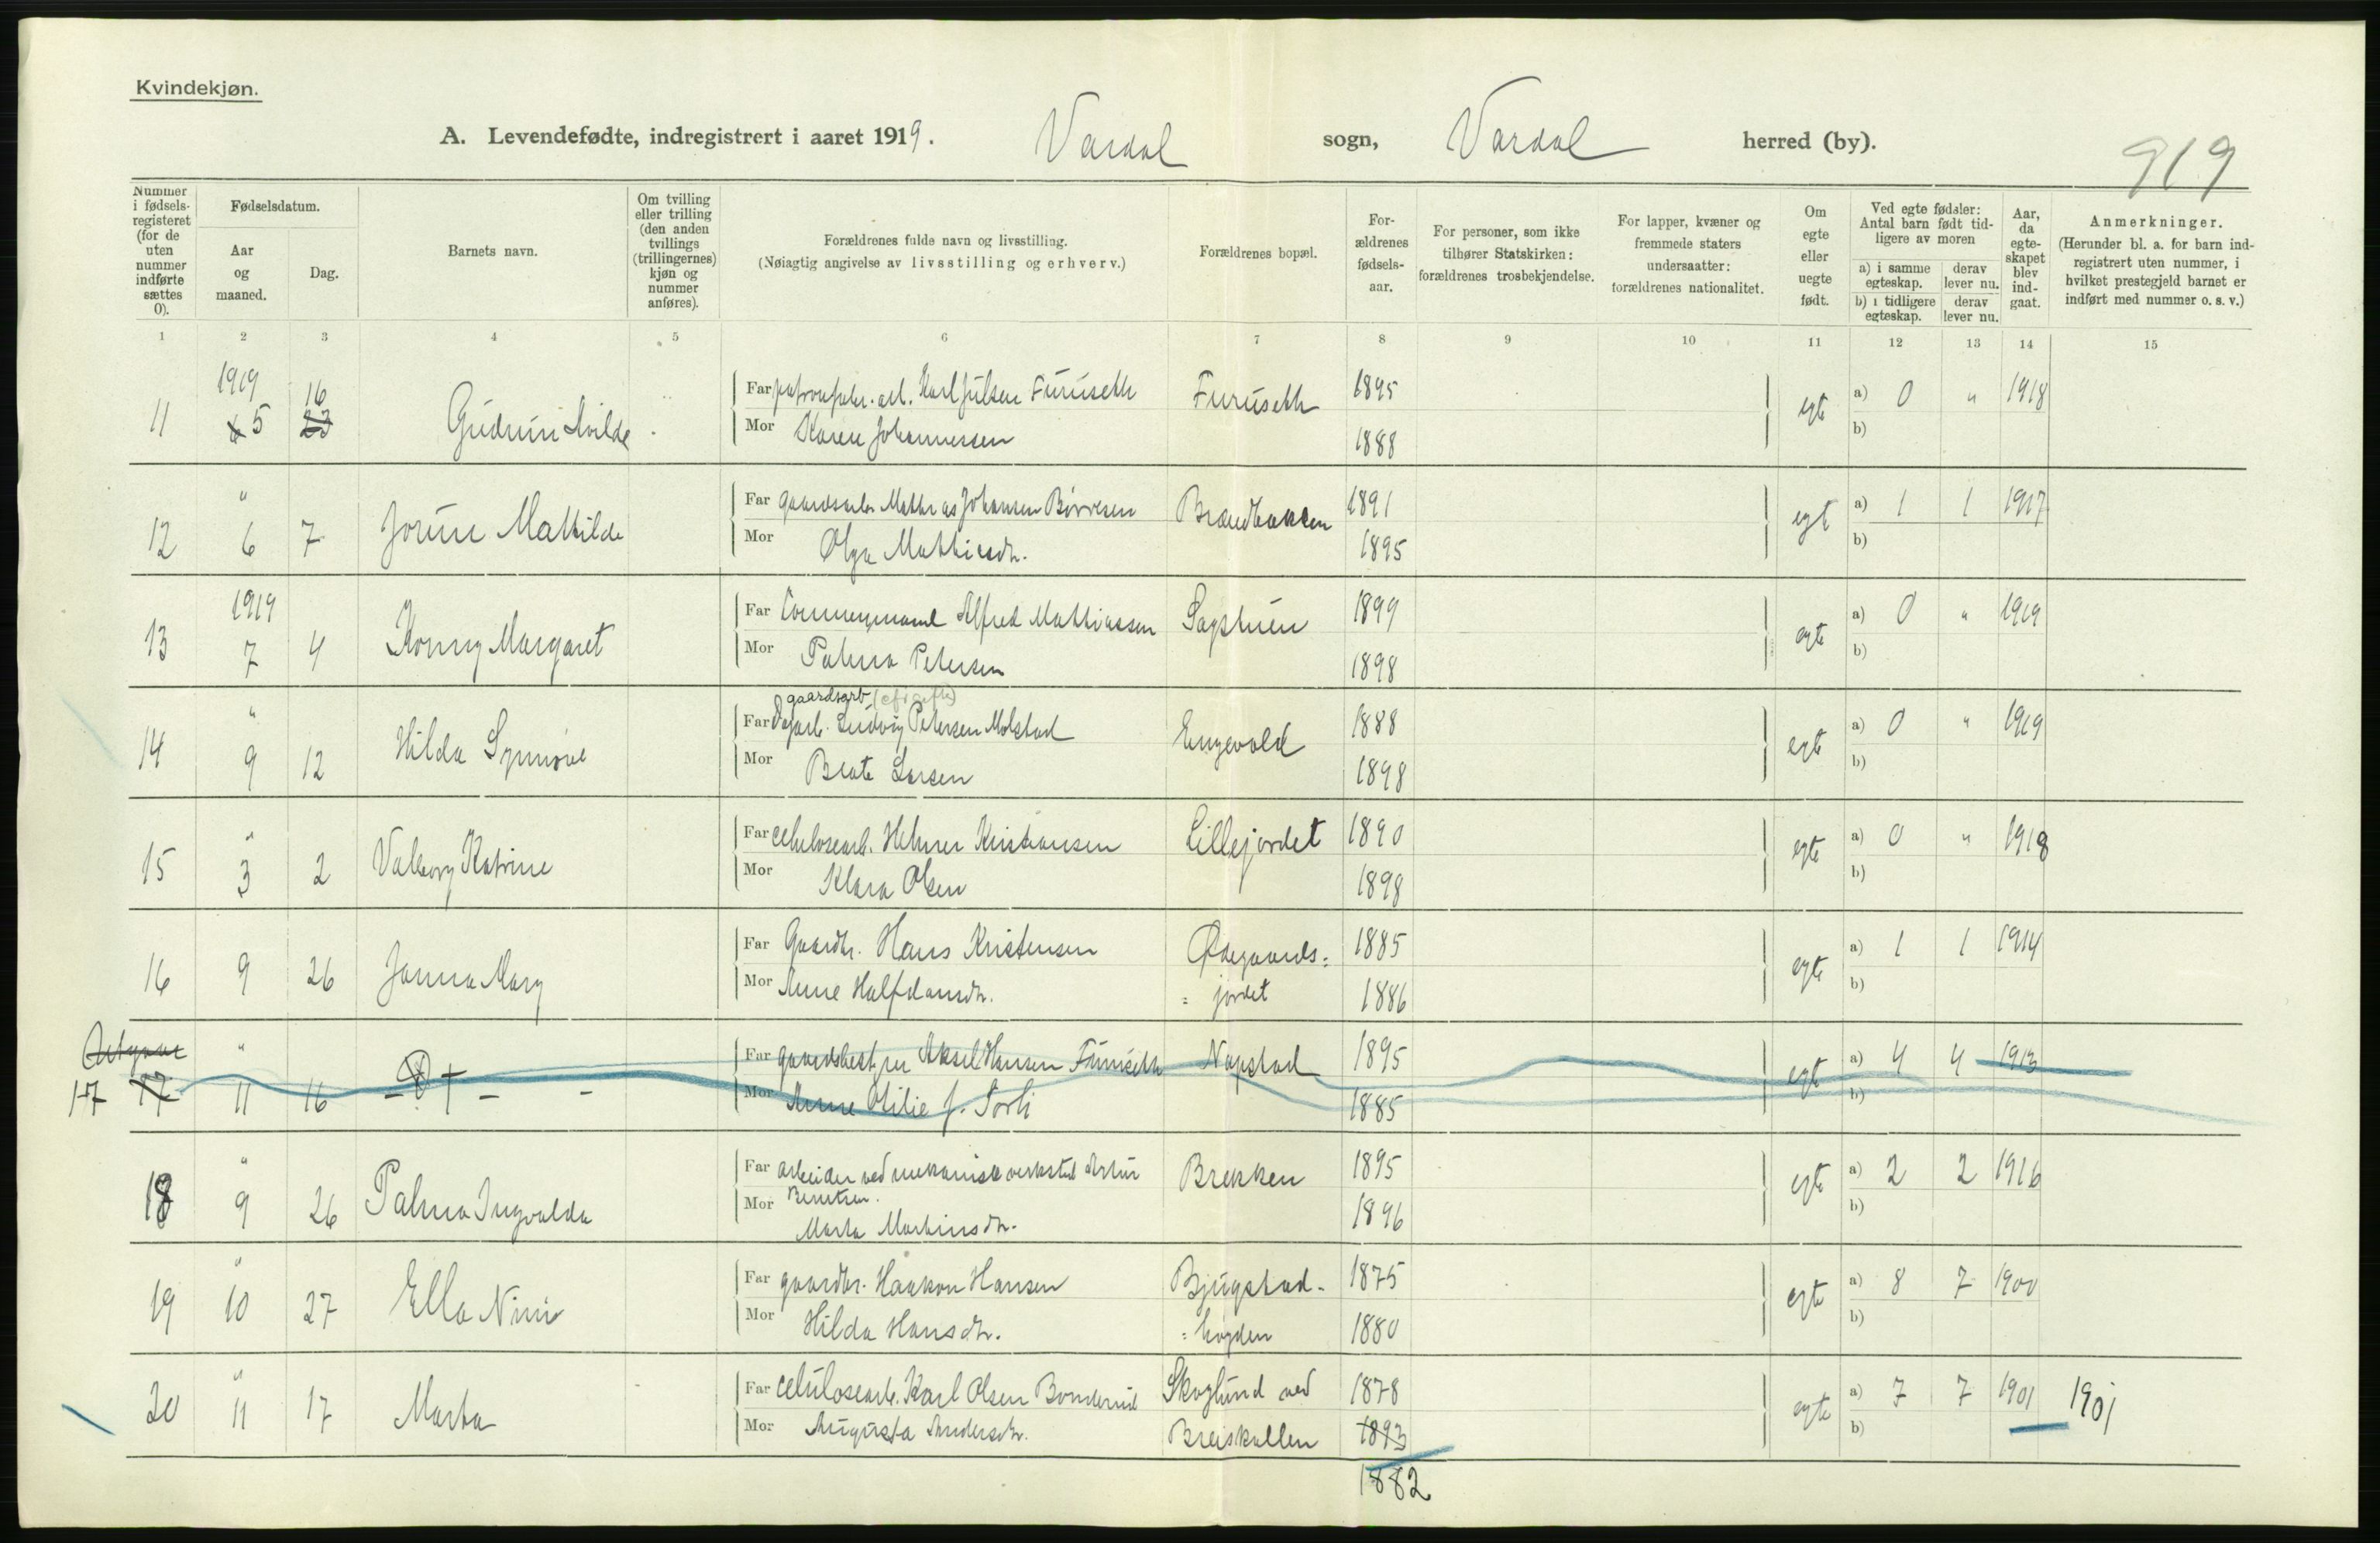 Kvindekjøn.
A. Levendefødte, indregistrert i aaret 1919. Vardal sogn, Vardal herred (by).
919
Nummer i fødsels-registeret (for de uten nummer indførte sættes 0).
Fødselsdatum.
Aar og maaned.
Dag.
Barnets navn.
Om tvilling eller trilling (den anden tvillings (trillingernes) kjøn og nummer anføres).
Forældrenes fulde navn og livsstilling.
(Nøiagtig angivelse av livsstilling og erhverv.)
Forældrenes bopæl.
For-ældrenes fødsels-aar.
For personer, som ikke tilhører Statskirken: forældrenes trosbekjendelse.
For lapper, kvæner og fremmede staters undersaatter: forældrenes nationalitet.
Om egte eller uegte født.
Ved egte fødsler: Antal barn født tid-ligere av moren
a) i samme egteskap.
derav lever nu.
b) i tidligere egteskap.
derav lever nu.
Aar, da egte-skapet blev ind-gaat.
Anmerkninger.
(Herunder bl. a. for barn ind-registrert uten nummer, i hvilket prestegjeld barnet er indført med nummer o. s. v.)
1 2 3 4 5 6 7 8 9 10 11 12 13 14 15
1919 16 Far Karl Julsen Furuseth Furuseth 1895 a) 0 " 1918
11 6 5 23 Gudrun Alvilde Mor Karen Johannessen 1888 egte b)
" Far gaardsarb. Mathias Johansen Børresen Brændbakken 1891 a) 1 1 1917
12 6 7 Jorun Mathilde Mor Olga Mathisdtr. 1895 egte b)
1919 Far Alfred Mathiassen Sagstuen 1899 a) 0 " 1919
13 7 4 Konny Margaret Mor Palma Petersen 1898 egte b)
gaardsarb.
" Far Ludvig Petersen Molstad Engevold 1888 a) 0 " 1919
14 9 12 Hilda Synnøve Mor Beate Larsen 1898 egte b)
" Far celulosearb. Helmer Kristiansen Lillejordet 1890 a) 0 " 1918
15 3 2 Valborg Katrine Mor Klara Olsen 1898 egte b)
Far Gaardbr. Hans Kristensen Ødegaards= 1885 a) 1 1 1914
16 9 26 Janna Mary Mor Anne Halfdansdtr. = jordet 1886 egte b)
Utgaar
" Far gaardsbestyrer Aksel Hansen Furuseth Nøpstad 1895 a) 4 4 1913
17 17 11 16 - D † - - Mor Anne Otilie f. Torli 1885 egte b)
" Far arbeider ved mekanisk verksted Artur Brekken 1895 a) 2 2 1916
18 9 26 Palma Ingvalda Mor Berntsen. egte b)
Marta Martinsdtr. 1896
" Far gaardbr. Haakon Hansen Bjugstad- 1875 a) 8 7 1900
19 10 27 Ella Nini Mor Hilda Hansdtr. = høgden 1880 egte b)
" Far celulosearb. Karl Olsen Bonderud Skoglund ved 1878 a) 7 7 1901 1901
20 11 17 Marta Mor Augusta Andersdtr. Breiskallen 1893 egte b)
1882